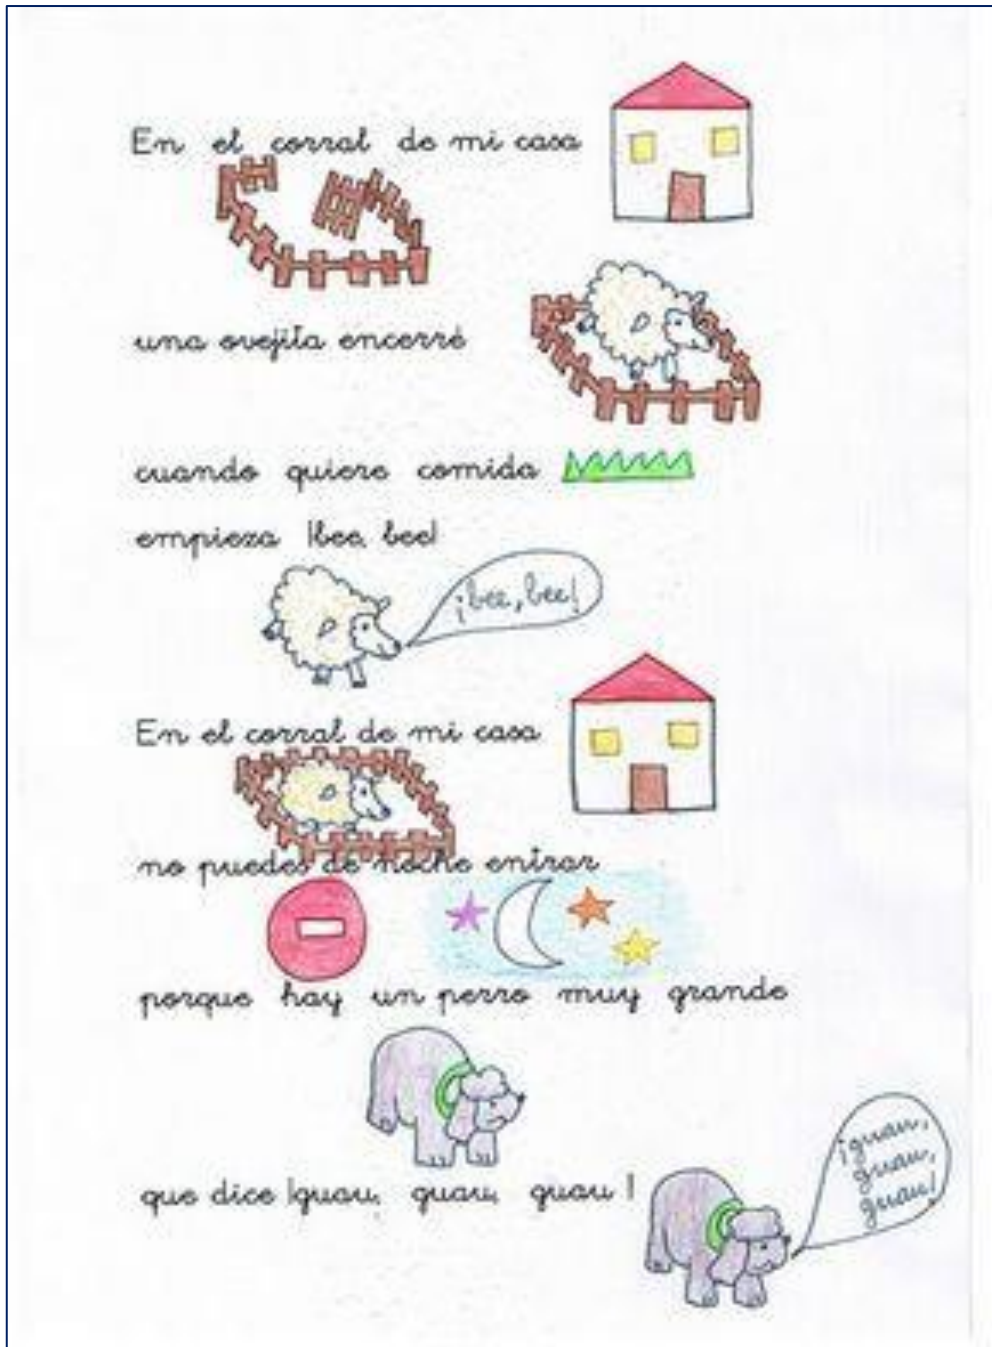 En el corral de mi casa
una ovejita encerré
cuando quiere comida
empieza ¡bee, bee!
¡bee, bee!
En el corral de mi casa
no puedes de noche entrar
porque hay un perro muy grande
que dice ¡guau, guau, guau !
¡guau,
guau,
guau!